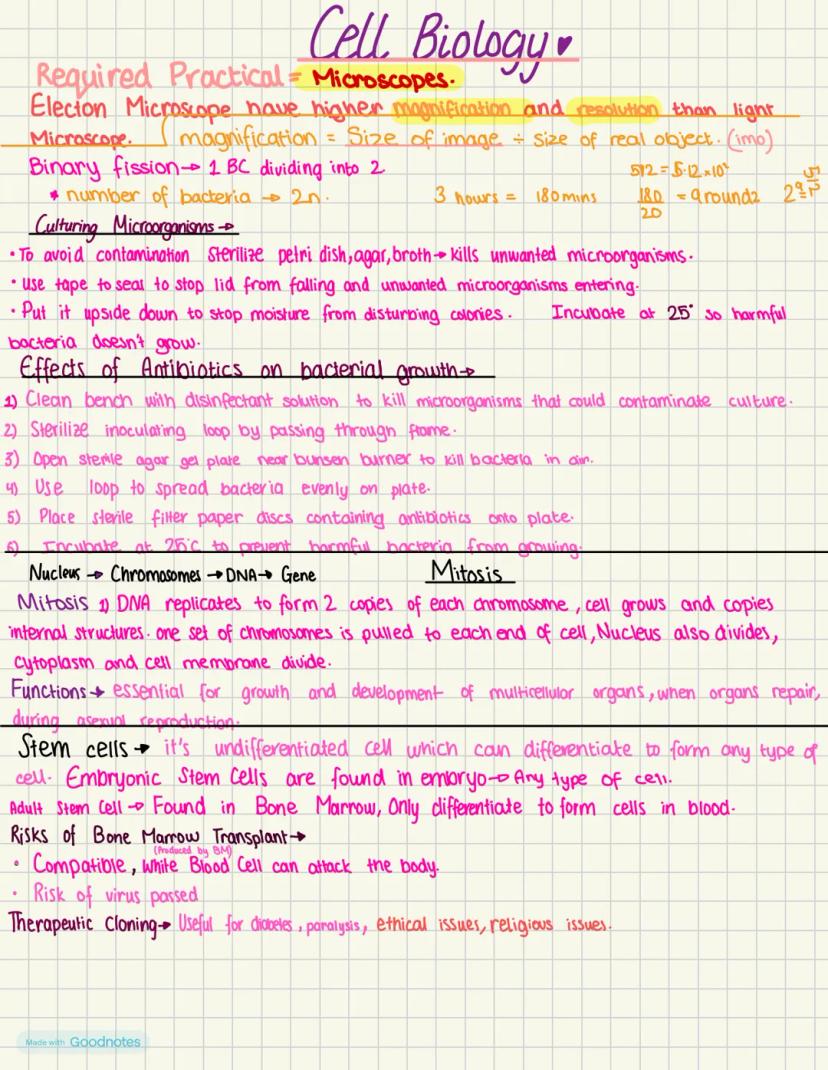 Cell Biology
Required Practical = Microscopes.
Electon Microscope have higher magnification and resolution than light
Microscope. magnification = Size of image ÷ size of real object. (imo)
Binary fission → 1 BC dividing into 2
* number of bacteria → 2n. 3 hours = 180mins 180/20 = 9 roundz 2⁹ = 512
512 = 5.12 × 10²
Culturing Microorganisms →
• To avoid contamination sterilize petri dish, agar, broth → kills unwanted microorganisms.
• use tape to seal to stop lid from falling and unwanted microorganisms entering.
• Put it upside down to stop moisture from disturbing colonies. Incubate at 25° so harmful
bacteria doesn't grow.
Effects of Antibiotics on bacterial growth →
1) Clean bench with disinfectant solution to kill microorganisms that could contaminate culture.
2) Sterilize inoculating loop by passing through flame.
3) Open sterile agar gel plate near bunsen burner to kill bacteria in air.
4) Use loop to spread bacteria evenly on plate.
5) Place sterile filter paper discs containing antibiotics onto plate.
6) Incubate at 25°C to prevent harmful bacteria from growing.
Nucleus → Chromosomes → DNA → Gene Mitosis
Mitosis 1) DNA replicates to form 2 copies of each chromosome, cell grows and copies
internal structures. one set of chromosomes is pulled to each end of cell, Nucleus also divides,
cytoplasm and cell membrane divide.
Functions → essential for growth and development of multicellular organs, when organs repair,
during asexual reproduction.
Stem cells → it's undifferentiated cell which can differentiate to form any type of
cell. Embryonic Stem Cells are found in embryo → Any type of cell.
Adult Stem Cell → Found in Bone Marrow, Only differentiate to form cells in blood.
Risks of Bone Marrow Transplant →
(Produced by BM)
• Compatible, White Blood Cell can attack the body.
• Risk of virus passed
Therapeutic Cloning → Useful for diabetes, paralysis, ethical issues, religious issues.
Made with Goodnotes